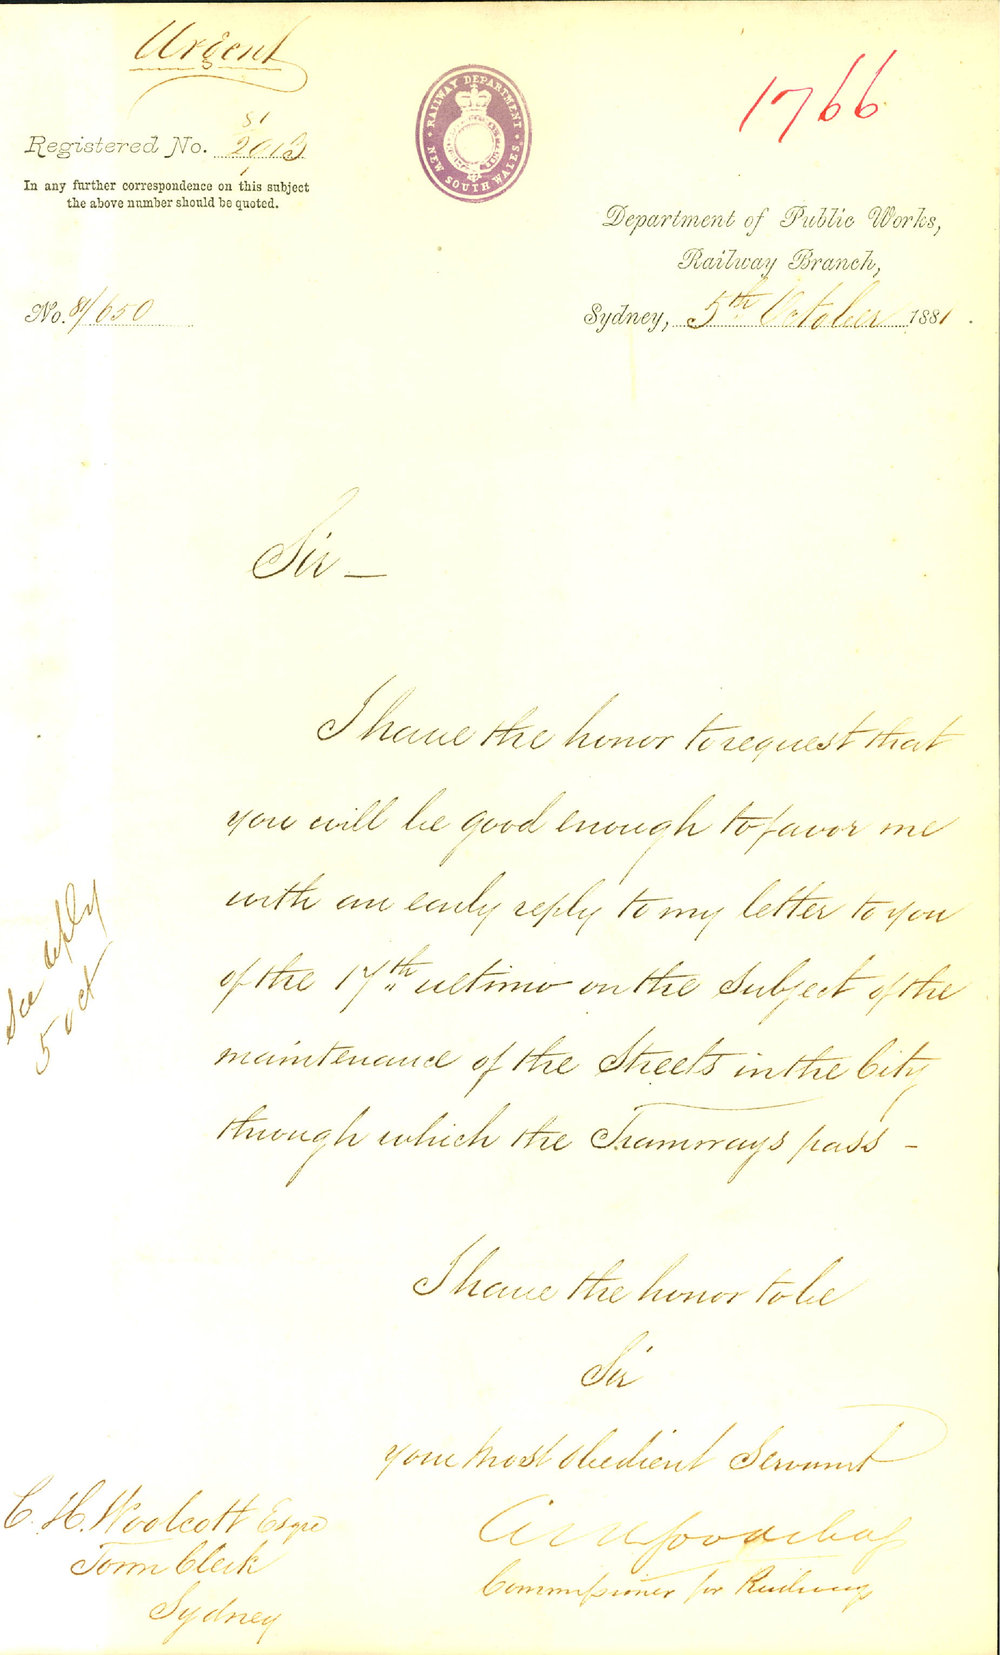 Urgent
1766
RAILWAY DEPARTMENT
NEW SOUTH WALES
Registered No. 81
In any further correspondence on this subject
the above number should be quoted.
Department of Public Works,
Railway Branch,
No. 81/650
Sydney, 5th October 1881.
Sir –
I have the honor to request that
you will be good enough to favor me
with an early reply to my letter to you
of the 17th ultimo on the subject of the
maintenance of the Streets in the City
through which the Tramways pass –
See reply
5 Oct
I have the honor to be
Sir
your most obedient Servant
Commissioner for Railways
C. H. Woolcott Esqre
Town Clerk
Sydney